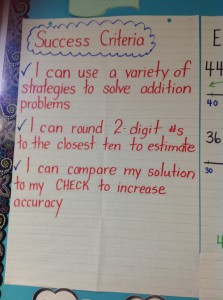 Success Criteria
✓ I can use a variety of
strategies to solve addition
problems
✓ I can round 2-digit #s
to the closest ten to estimate
✓ I can compare my solution
to my CHECK to increase
accuracy
E
44
40
36
30